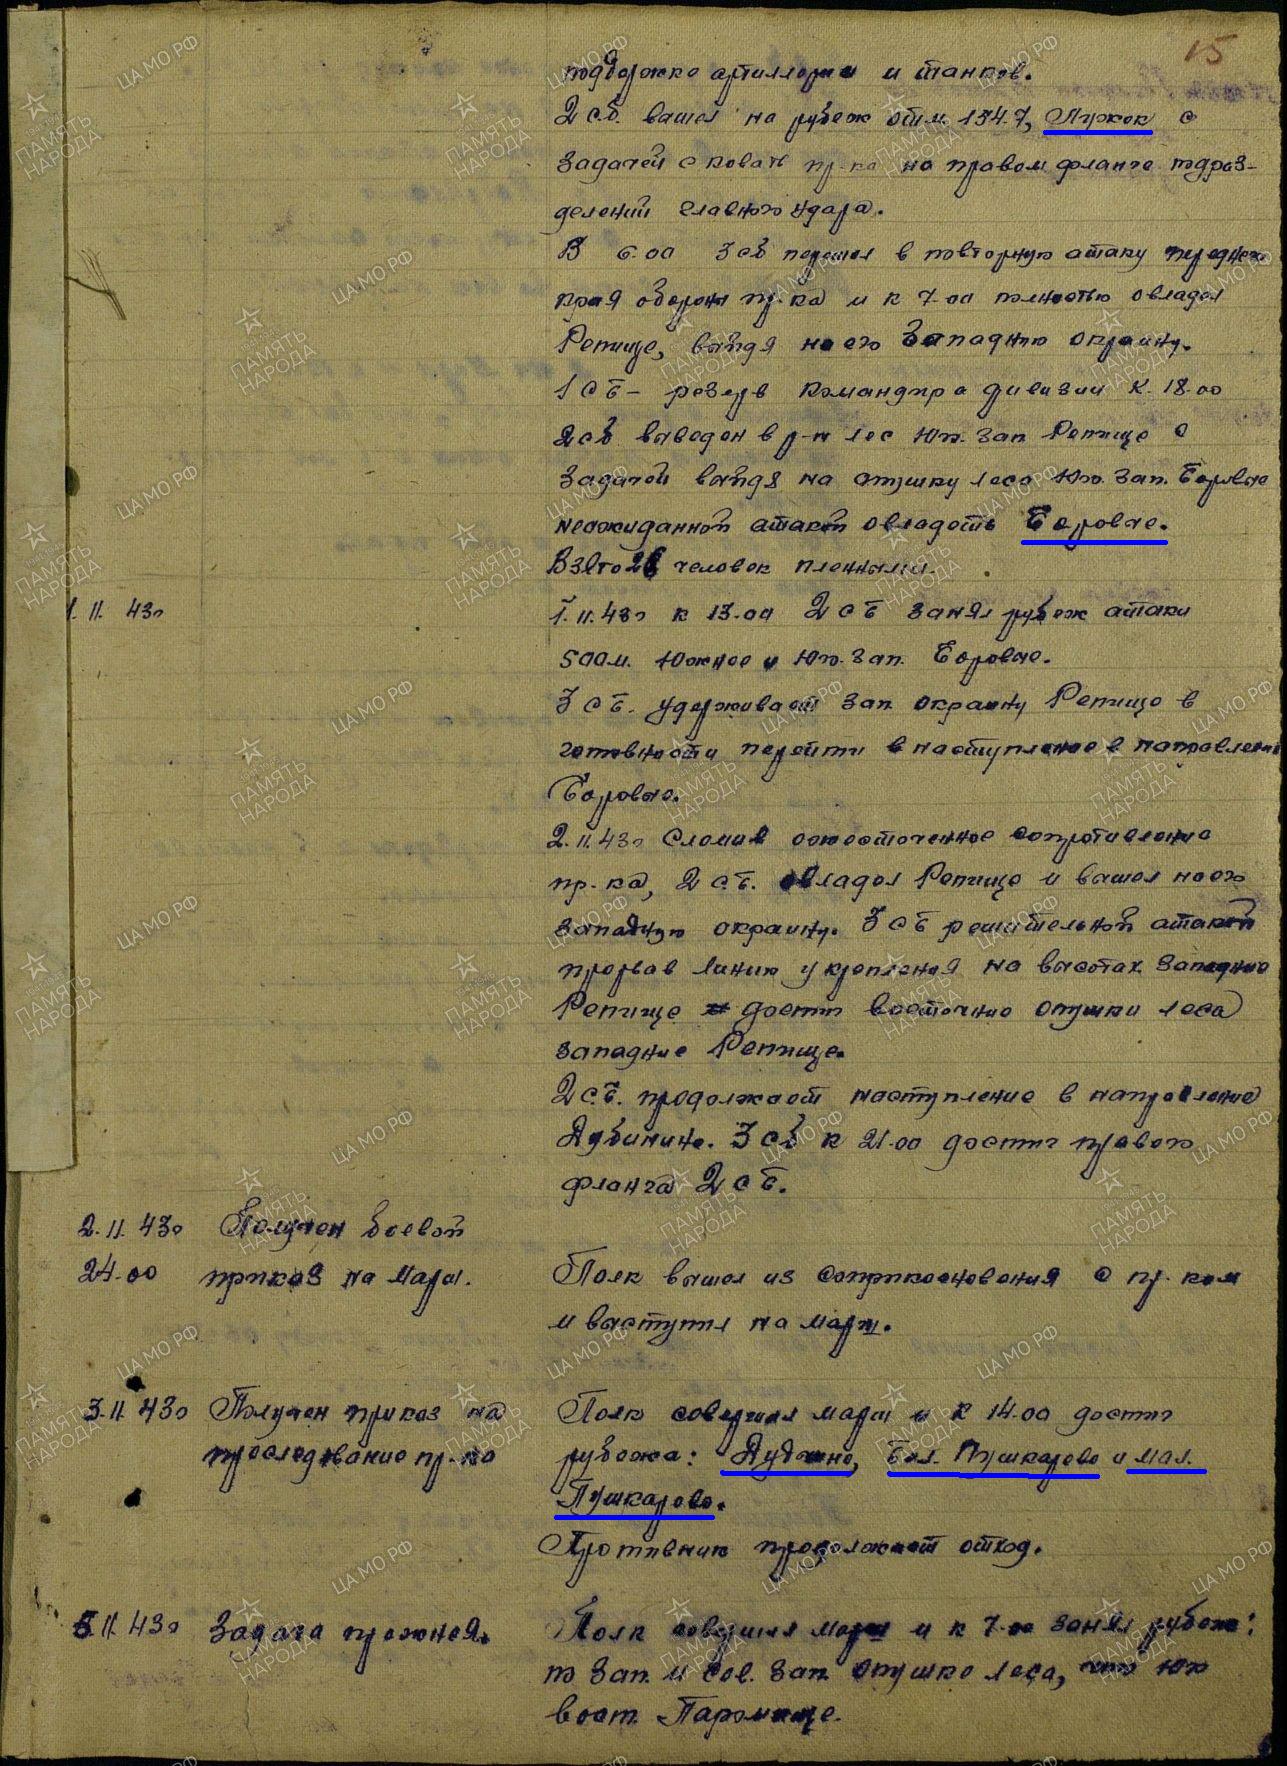 15
поддержке артиллерии и танков.
2 сб. вышел на рубеж отм. 154.7, Лужок с
задачей сковать пр-ка на правом фланге подраз-
делений главного удара.
В 6.00 3 сб перешел в повторную атаку переднего
края обороны пр-ка и к 7-00 полностью овладел
Репище, выйдя на его западную окраину.
1 сб - резерв командира дивизии к 18-00
2 сб выведен в р-н лес Юго-Зап Репище с
задачей выйдя на опушку леса Юго-Зап. Боровые
неожиданной атакой овладеть Боровые.
Взято 26 человек пленными.
1. 11. 43г 1.11.43г к 13-00 2 сб занял рубеж атаки
500 м. Южнее и Юго-Зап. Боровые.
3 сб. удерживает зап окраину Репище в
готовности перейти в наступление в направлении
Боровые.
2.11.43г Сломив ожесточенное сопротивление
пр-ка, 2 сб. овладел Репище и вышел на его
западную окраину. 3 сб решительной атакой
прорвав линию укрепления на высотах западнее
Репище достиг восточные опушки леса
западнее Репище.
2 сб. продолжает наступление в направление
Дубинино. 3 сб к 21-00 достиг правого
фланга 2 сб.
2. 11. 43г Получен боевой
24-00 приказ на марш. Полк вышел из соприкосновения с пр-ком
и выступил на марш.
3.11 43г Получен приказ на Полк совершил марш и к 14-00 достиг
преследование пр-ка рубежа: Дудчино, Бол. Пушкарево и мал.
Пушкарево.
Противник продолжает отход.
5.11 43г Задача прежняя. Полк совершил марш и к 7-00 занял рубеж:
по зап. и Сев. зап опушке леса, что Юго
вост.
ЦА МО РФ
ПАМЯТЬ НАРОДА